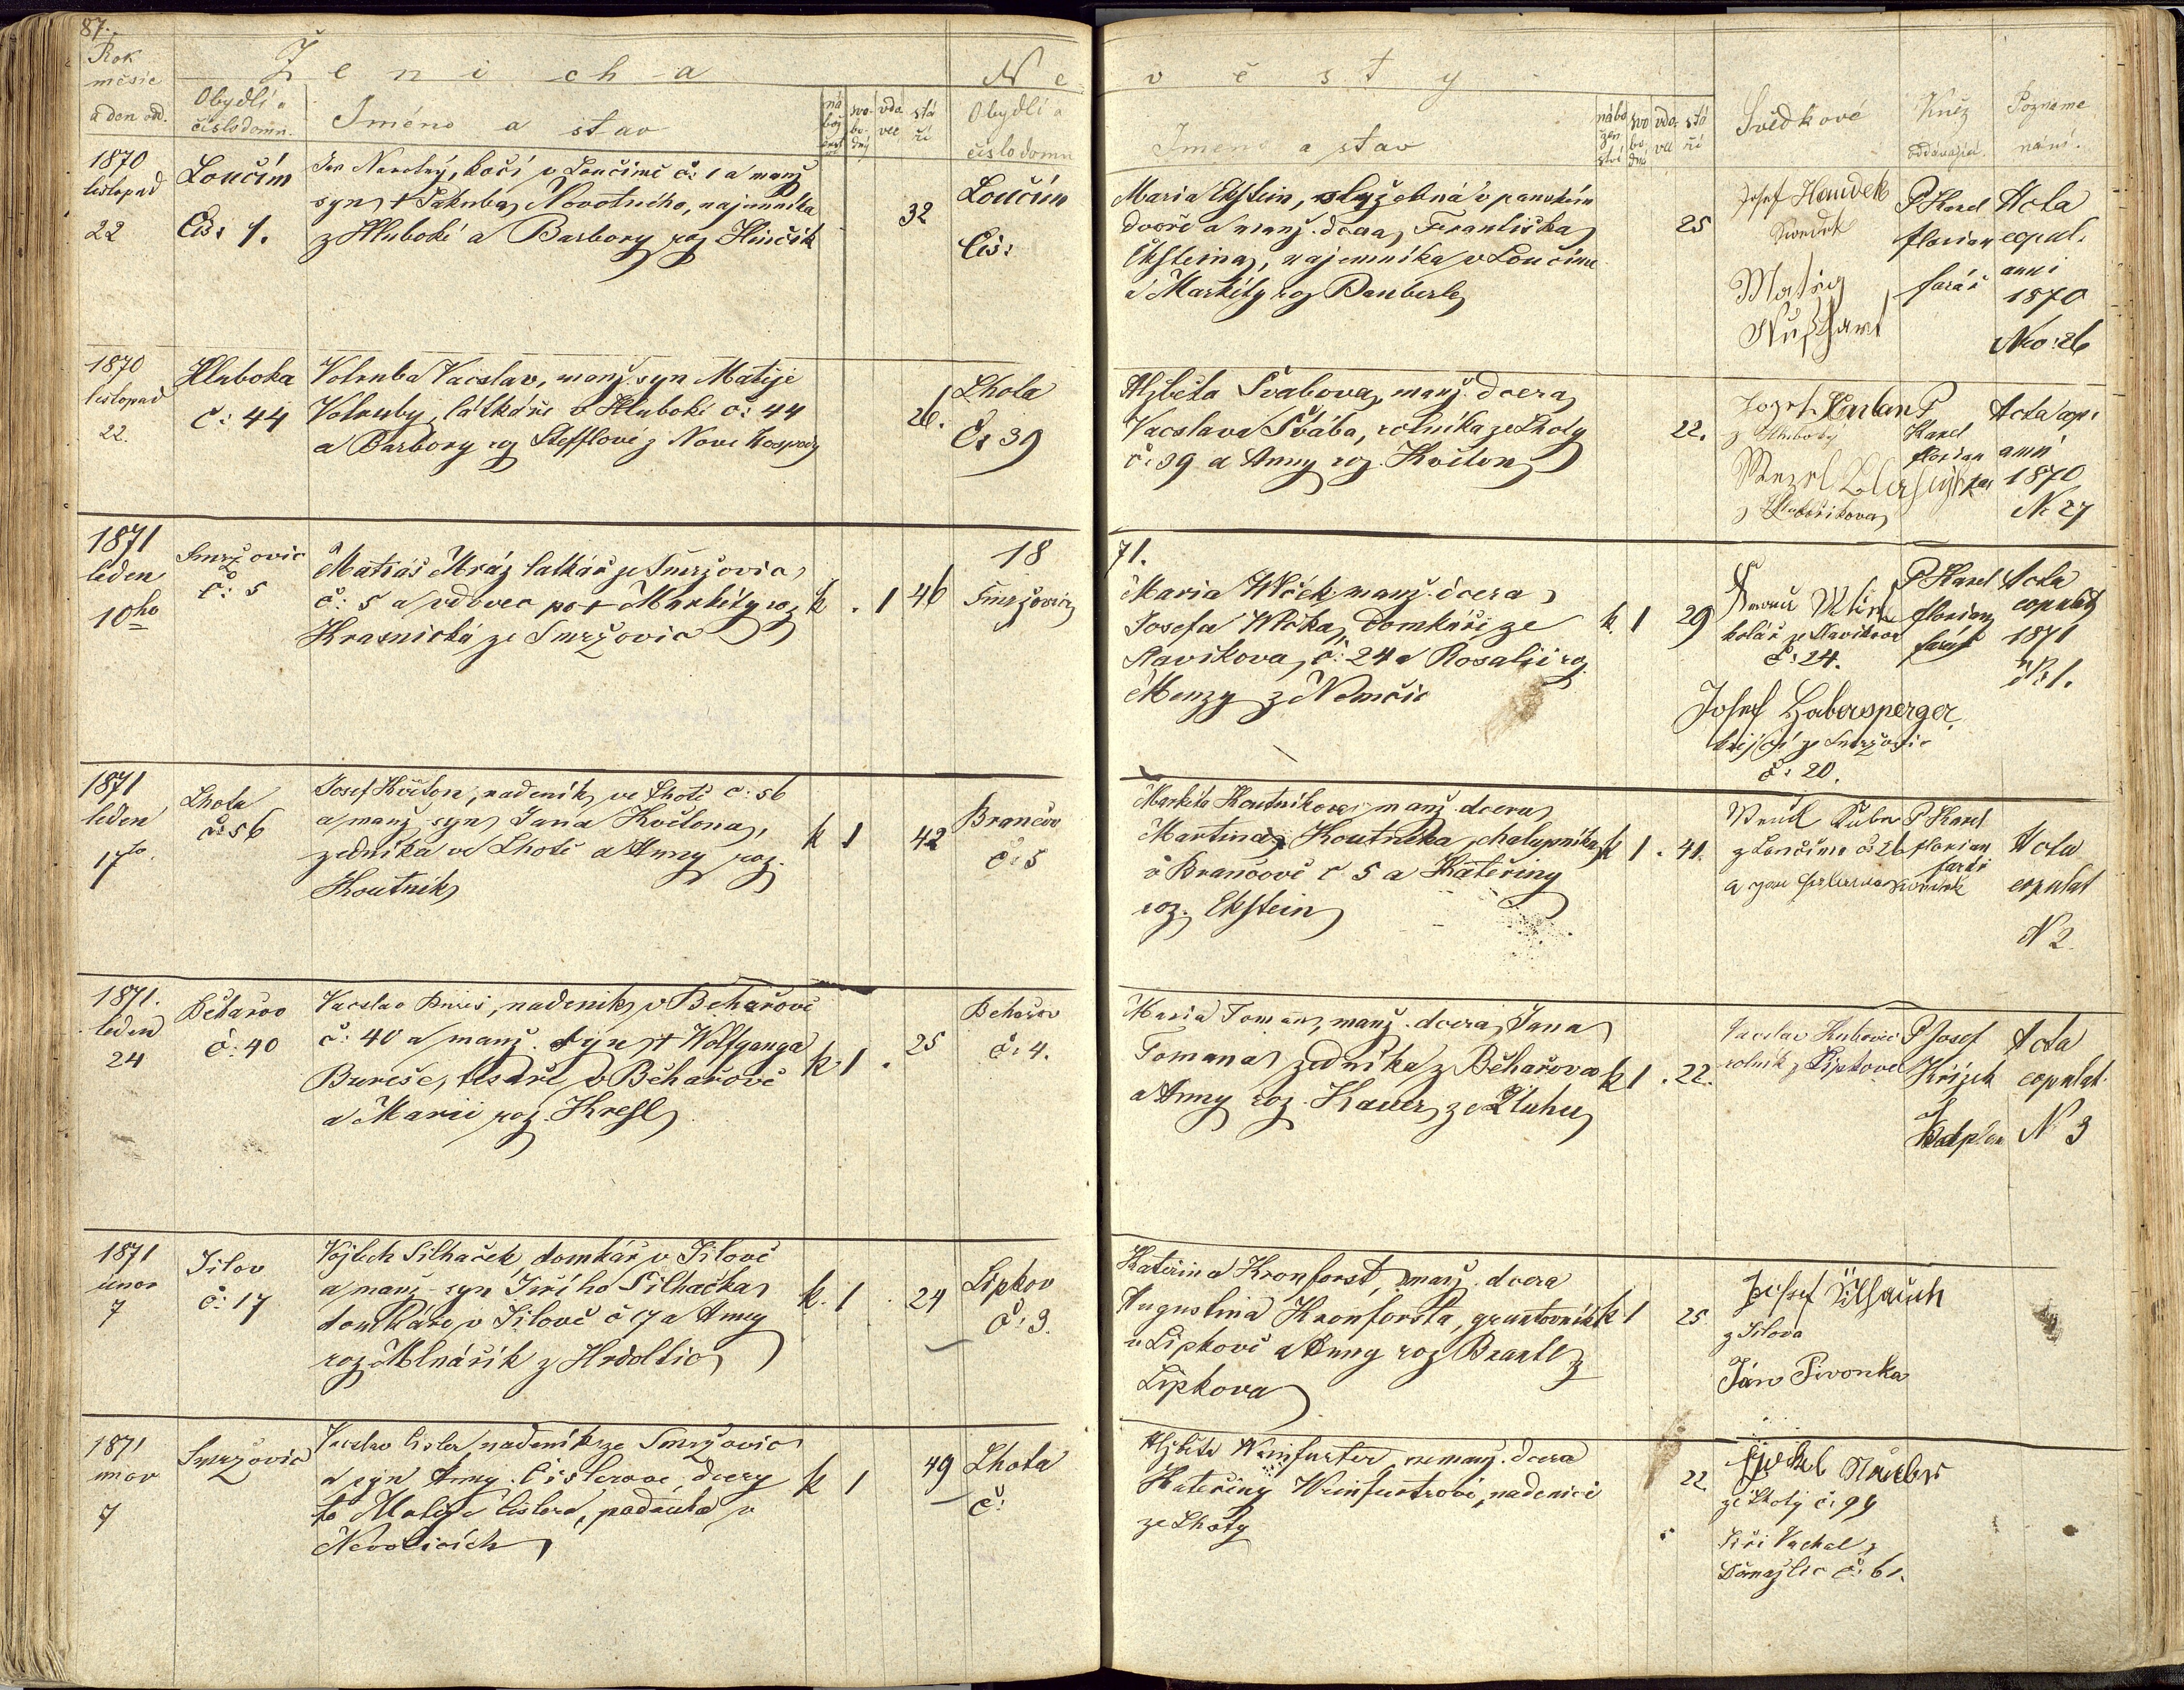 87.
Rok
měsíc
a den odd.
Ženicha
Obydlí a
číslo domu.
Jméno a stav
ná
bož
svo-
bo-
dný
vdo-
vec
stá
ří
Ne
Obydlí a
číslo domu
věsty
Jméno a stav
nábo
žen
ství
svo
bo,
dná
vdo-
stá
ří
Svědkové
Kněz
oddávající.
Pozname
nání.
1870
listopad
22
Loučím
Čís: 1.
Jan Novotný, kočí v Loučimě č: 1 a manž
syn † Jakuba Novotného, najemníka
z Hluboké a Barbory roz Hinčik
32
Loučím
Čís:
Maria Ekstein, služebná v panském
dvoře a manž. dcera Františka
Eksteina, najemníka v Loučimě
a Markéty roz
25
Josef
Svědek
Matěj
P Karel
Florian
farář
Acta
copul.
anni
1870
Nro: 26
1870
listopad
22.
Hluboka
č: 44
Volruba Vacslav, manž. syn Matěje
Volruby, látkaře v Hluboké č: 44
a Barbory roz Stefflové z Nové hospody
26.
Lhota
Č: 39
Alžběta Švabova, manž. dcera
Vacslava Švába, rolníka ze Lhoty
č: 39 a Anny roz. Květon
22.
Josef
z Hluboky
Wenzl
P
Karel
Florian
far
Acta cop:
anni
1870
N. 27
1871
leden
10ho
Smržovic
č: 5
Matiáš Mráz latkář ze Smržovic
č: 5 a vdovec po † Markéty roz
Krasnická ze Smržovic
k . 1 46
18
Smržovic
71.
Maria Wlček manž. dcera
Josefa Wlčka, domkáře ze
Slavíkova, č: 24 a Rosalii roz
Menzy z Nemčic
k. 1 29
kolář ze Slavikova
č: 24.
Josef Habersperger
krejčí ze Smržovic
č: 20.
P Karel
Florian
farář
Acta
copulat
1871
N: 1.
1871
leden
17to
Lhota
č: 56
Josef Květon, nadeník ve Lhotě č: 56
a manž syn Jana Květona,
zedníka ve Lhotě a Anny roz.
Koutník
k 1 42
Brančov
č: 5
Markéta Koutníkova, manž. dcera
Martina Koutníka, chalupníka
v Brančově č 5 a Kateřiny
roz. Ekstein
k 1 . 41.
Kuba
z Loučima č: 26
P Karel
Florian
farář
Acta
copulat
N 2.
1871.
leden
24
Běhařov
č: 40
Vacslav Bureš, nadeník v Běhařově
č: 40 a manž. syn † Wolfganga
Bureše, tesaře v Běhařově
a Marii roz. Kresl
k 1 . 25
Behařov
č: 4.
Maria Toman, manž. dcera Jana
Tomana zedníka z Běhařova
a Anny roz. Hauer, ze Zluhu
k 1 . 22.
Vacslav
rolník z Lipkova
P Josef
Křížek
Kaplan
Acta
copulat
N 3
1871
únor
7
Jilov
č: 17
Vojtěch Silhaček, domkář v Jilově
a manž syn Jiřího Silhačka
domkáře v Jilově č 17 a Anny
roz. Mlnářik z Hrdoltic
k. 1 . 24
Lipkov
č: 3.
Kateřina Kronforst, manž. dcera
Augustina Kronforsta, gruntovník
v Lipkově a Anny roz Brantl z
Lipkova
k 1 25
Josef
z Jilova
Ján Pivonka
1871
únor
7
Smržovic
Vacslav Cisler, nadeník ze Smržovic
a syn Anny Cislerové dcery
to Matěje Cislera, padrucha v
Nevolicích
k 1 49
Lhota
č:
Alžběta Weinfurter, nemanž. dcera
Kateřiny Weinfurtrové, nadenici
ze Lhoty
22
ze Lhoty č: 94
Jiří Vachal z
Domažlic č: 61.